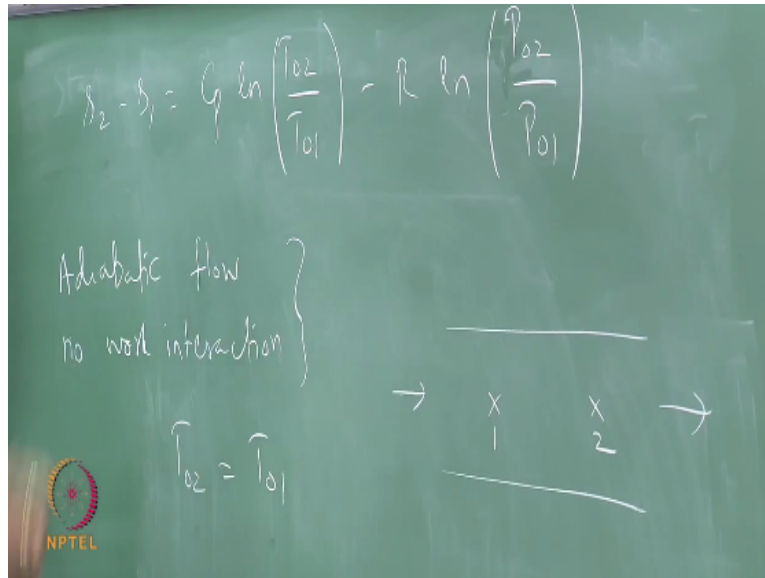 s₂ - s₁ = Cp ln (T₀₂ / T₀₁) - R ln (P₀₂ / P₀₁)
Adiabatic flow
no work interaction }
→ x 1 x 2 →
T₀₂ = T₀₁
NPTEL